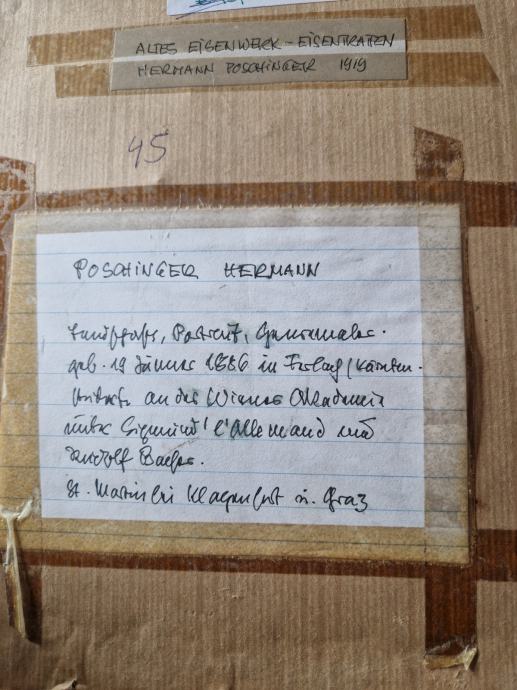 ALTES EISENWERK - EISENTRATTEN
HERMANN POSCHINGER 1919
45
POSCHINGER HERMANN
Landschafts, Portrait, Genremaler.
geb. 19 Jänner 1886 in / Kärnten.
an der Wiener Akademie
unter Sigmund l'Allemand und
Rudolf Bacher.
St. Martin bei Klagenfurt u. Graz